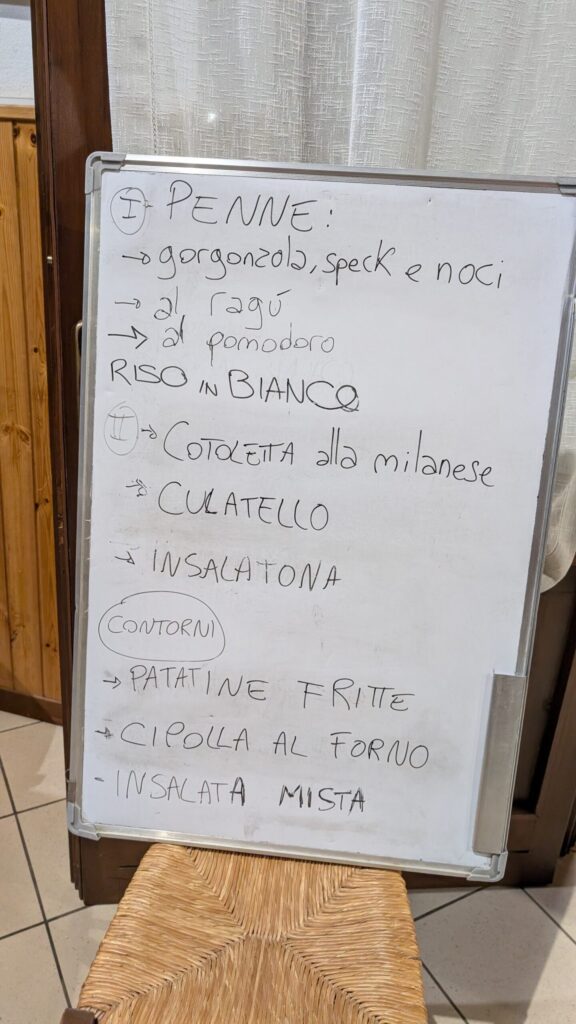 I - PENNE:
→ gorgonzola, speck e noci
→ al ragú
→ al pomodoro
RISO IN BIANCO
II → COTOLETTA alla milanese
→ CULATELLO
→ INSALATONA
CONTORNI
→ PATATINE FRITTE
→ CIPOLLA AL FORNO
- INSALATA MISTA